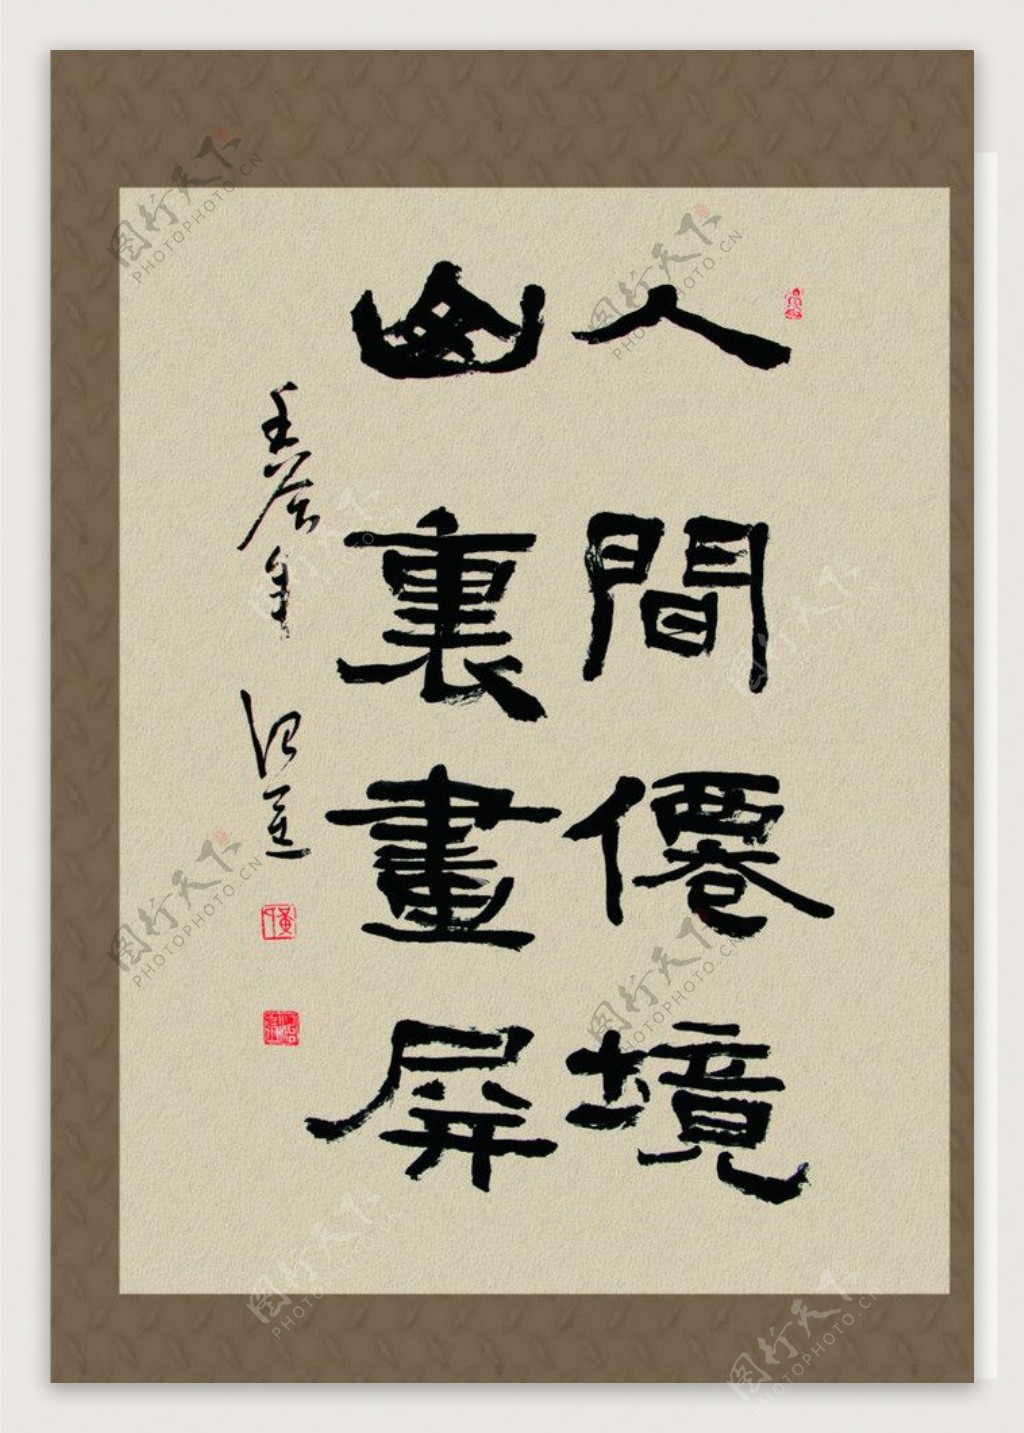 人間僊境
山裏畫屏
壬辰年
图行天下
PHOTOPHOTO.CN